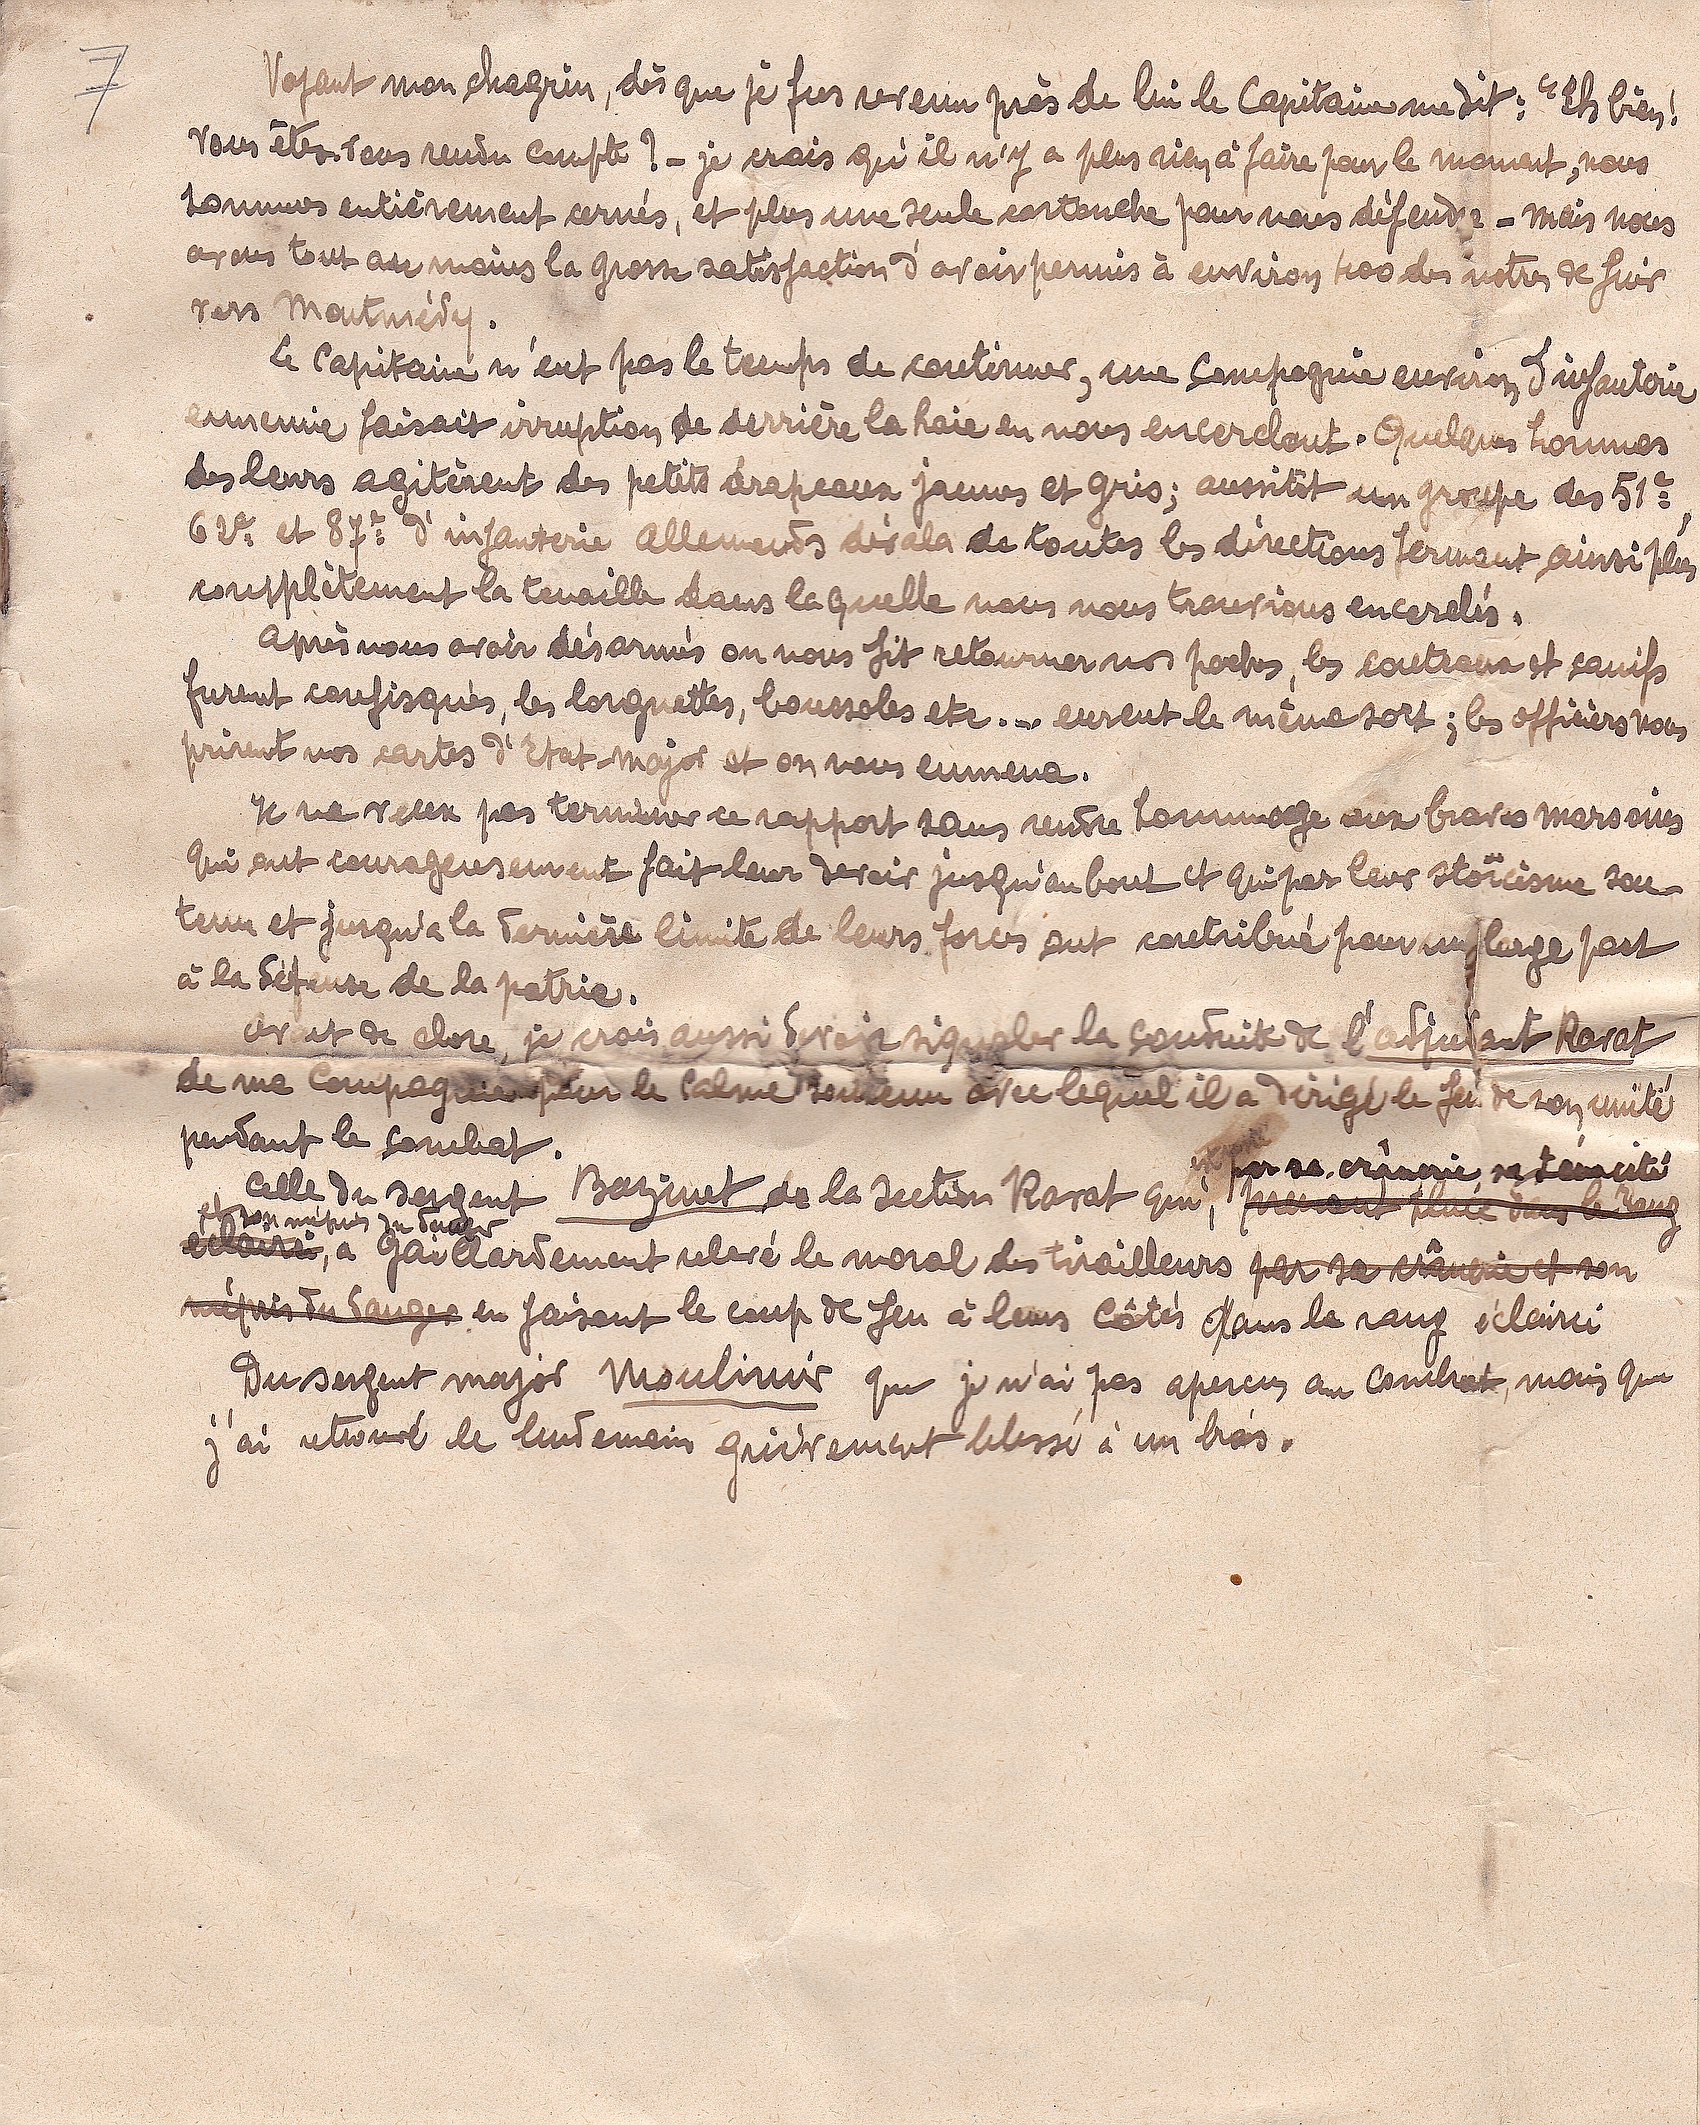 7
Voyant mon chagrin, dès que je fus revenu près de lui le Capitaine me dit : "Eh bien!
vous êtes-vous rendu compte ? - je crois qu'il n'y a plus rien à faire pour le moment, nous
sommes entièrement cernés, et plus une seule cartouche pour nous défendre - mais nous
avons tout au moins la grosse satisfaction d'avoir permis à environ des notres de fuir
vers Montmédy.
Le Capitaine n'eut pas le temps de continuer, une Compagnie environ d'infanterie
ennemie faisait irruption de derrière la haie en nous encerclant. Quelques hommes
des leurs agitèrent des petits drapeaux jaunes et gris ; aussitôt un groupe des 51e,
62e et 87e d'infanterie allemands dévala de toutes les directions fermant ainsi plus
complètement la tenaille dans laquelle nous nous trouvions encerclés.
Après nous avoir désarmés on nous fit retourner nos poches, les couteaux et canifs
furent confisqués, les lorgnettes, boussoles etc... eurent le même sort ; les officiers nous
prirent nos cartes d'Etat-Major et on nous emmena.
Je ne veux pas terminer ce rapport sans rendre hommage aux braves marsouins
qui ont courageusement fait leur devoir jusqu'au bout et qui par leur stoïcisme sou-
tenu et jusqu'à la dernière limite de leurs forces ont contribué pour un large part
à la défense de la patrie.
Avant de clore, je crois aussi devoir signaler la conduite de l'adjudant Ravat
de ma Compagnie pour le calme soutenu avec lequel il a dirigé le feu de son unité
pendant le combat.
par sa crânerie, sa ténacité
Celle du sergent Bazinet de la section Ravat qui, prenant place dans le rang
et son mépris du danger
éclairci, a gaillardement relevé le moral des tirailleurs par sa crânerie et son
mépris du danger en faisant le coup de feu à leurs côtés dans le rang éclairci
Du sergent major Moulinier que je n'ai pas aperçu au combat, mais que
j'ai retrouvé le lendemain grièvement blessé à un bras.